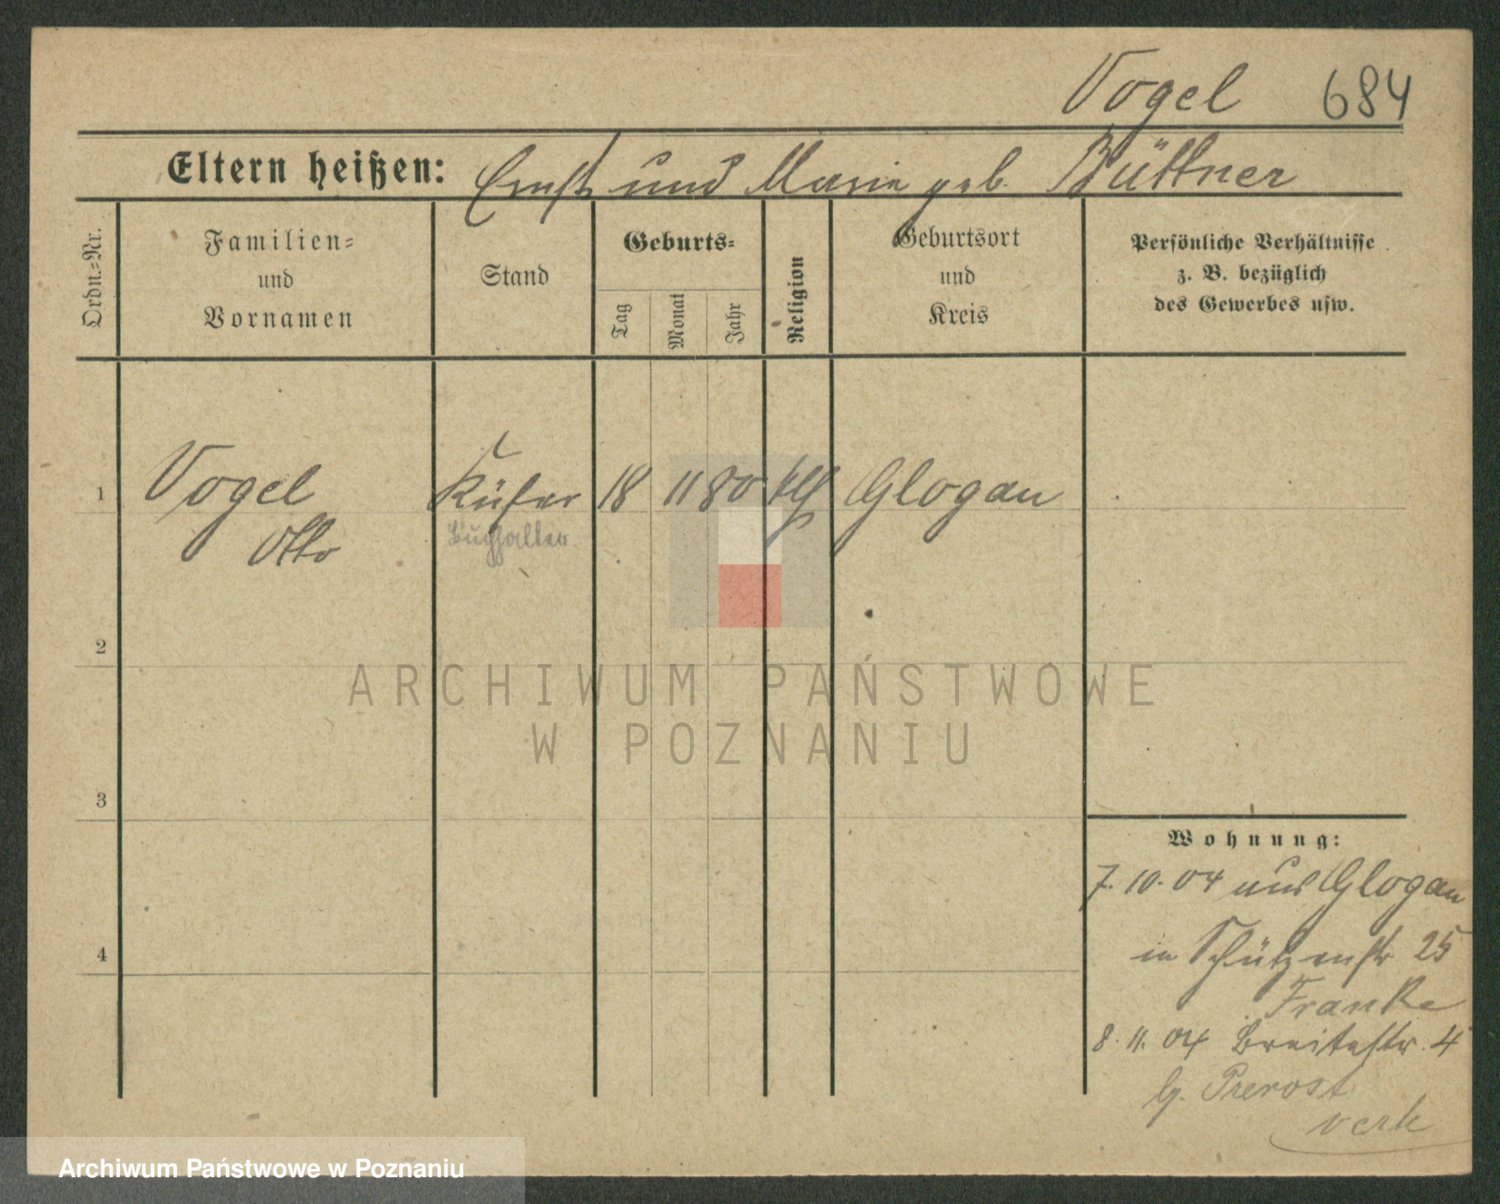 Vogel 684
Eltern heißen: Ernst und Marie geb. Büttner
Ordn.-Nr.
Familien-
und
Vornamen
Stand
Geburts-
Tag
Monat
Jahr
Religion
Geburtsort
und
Kreis
Persönliche Verhältnisse
z. B. bezüglich
des Gewerbes usw.
1 Vogel Küfer 18 11 80 Glogau
Otto Buchhalter
2
3
4
Wohnung:
7. 10. 04 aus Glogau
in Schützenstr 25
Franke
8. 11. 04 Breitestr. 4
b. Prevost
verh
ARCHIWUM PAŃSTWOWE
W POZNANIU
Archiwum Państwowe w Poznaniu